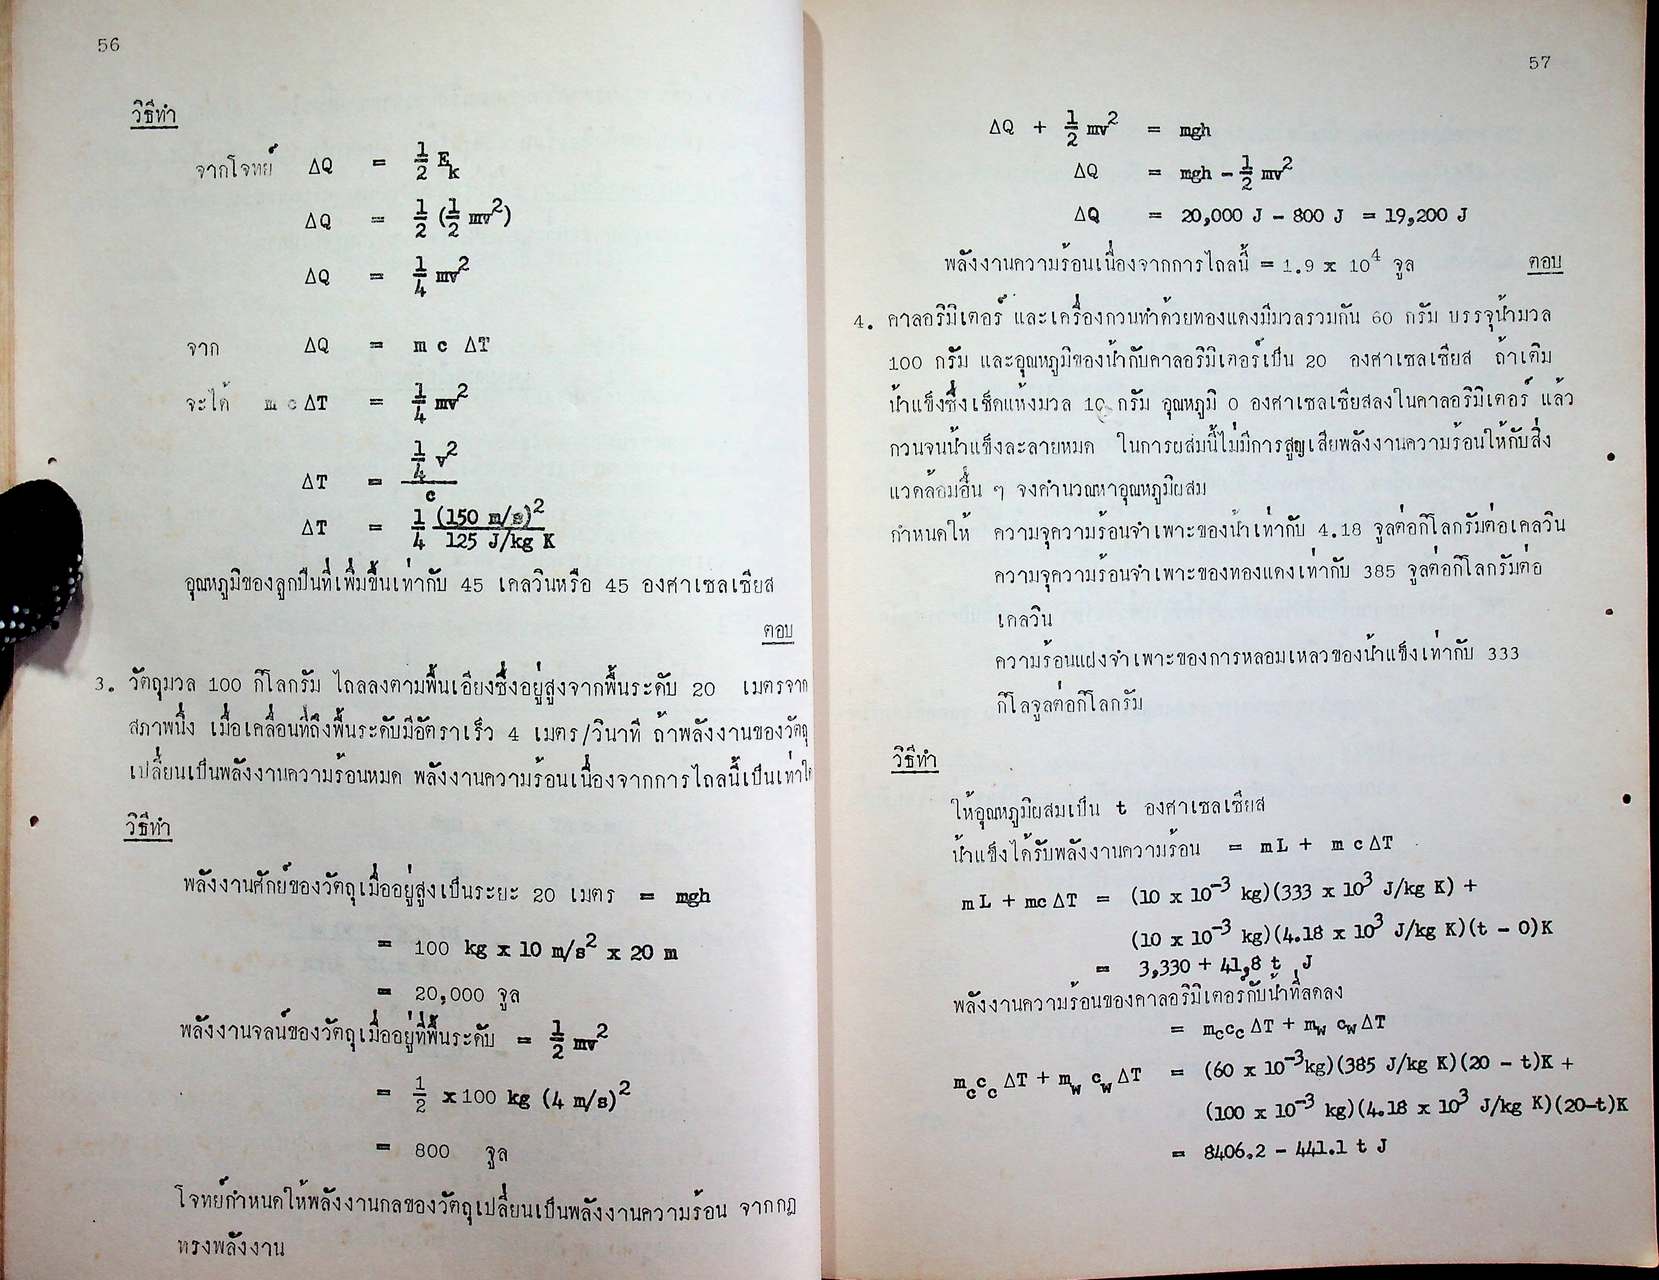 56
วิธีทำ
จากโจทย์ ΔQ = 1/2 E_k
ΔQ = 1/2 (1/2 mv²)
ΔQ = 1/4 mv²
จาก ΔQ = m c ΔT
จะได้ m c ΔT = 1/4 mv²
ΔT = 1/4 v² / c
ΔT = 1/4 (150 m/s)² / 125 J/kg K
อุณหภูมิของลูกปืนที่เพิ่มขึ้นเท่ากับ 45 เคลวินหรือ 45 องศาเซลเซียส
ตอบ
3. วัตถุมวล 100 กิโลกรัม ไถลลงตามพื้นเอียงซึ่งอยู่สูงจากพื้นระดับ 20 เมตรจาก
สภาพนิ่ง เมื่อเคลื่อนที่ถึงพื้นระดับมีอัตราเร็ว 4 เมตร/วินาที ถ้าพลังงานของวัตถุ
เปลี่ยนเป็นพลังงานความร้อนหมด พลังงานความร้อนเนื่องจากการไถลนี้เป็นเท่าใด
วิธีทำ
พลังงานศักย์ของวัตถุเมื่ออยู่สูงเป็นระยะ 20 เมตร = mgh
= 100 kg x 10 m/s² x 20 m
= 20,000 จูล
พลังงานจลน์ของวัตถุเมื่ออยู่ที่พื้นระดับ = 1/2 mv²
= 1/2 x 100 kg (4 m/s)²
= 800 จูล
โจทย์กำหนดให้พลังงานกลของวัตถุเปลี่ยนเป็นพลังงานความร้อน จากกฎ
ทรงพลังงาน
57
ΔQ + 1/2 mv² = mgh
ΔQ = mgh - 1/2 mv²
ΔQ = 20,000 J - 800 J = 19,200 J
พลังงานความร้อนเนื่องจากการไถลนี้ = 1.9 x 10⁴ จูล ตอบ
4. คาลอริมิเตอร์ และเครื่องกวนทำด้วยทองแดงมีมวลรวมกัน 60 กรัม บรรจุน้ำมวล
100 กรัม และอุณหภูมิของน้ำกับคาลอริมิเตอร์เป็น 20 องศาเซลเซียส ถ้าเติม
น้ำแข็งซึ่งเช็ดแห้งมวล 10 กรัม อุณหภูมิ 0 องศาเซลเซียสลงในคาลอริมิเตอร์ แล้ว
กวนจนน้ำแข็งละลายหมด ในการผสมนี้ไม่มีการสูญเสียพลังงานความร้อนให้กับสิ่ง
แวดล้อมอื่น ๆ จงคำนวณหาอุณหภูมิผสม
กำหนดให้ ความจุความร้อนจำเพาะของน้ำเท่ากับ 4.18 จูลต่อกิโลกรัมต่อเคลวิน
ความจุความร้อนจำเพาะของทองแดงเท่ากับ 385 จูลต่อกิโลกรัมต่อ
เคลวิน
ความร้อนแฝงจำเพาะของการหลอมเหลวของน้ำแข็งเท่ากับ 333
กิโลจูลต่อกิโลกรัม
วิธีทำ
ให้อุณหภูมิผสมเป็น t องศาเซลเซียส
น้ำแข็งได้รับพลังงานความร้อน = mL + m c ΔT
mL + mc ΔT = (10 x 10⁻³ kg)(333 x 10³ J/kg K) +
(10 x 10⁻³ kg)(4.18 x 10³ J/kg K)(t - 0)K
= 3,330 + 41,8 t J
พลังงานความร้อนของคาลอริมิเตอร์กับน้ำที่ลดลง
= m_c c_c ΔT + m_w c_w ΔT
m_c c_c ΔT + m_w c_w ΔT = (60 x 10⁻³ kg)(385 J/kg K)(20 - t)K +
(100 x 10⁻³ kg)(4.18 x 10³ J/kg K)(20-t)K
= 8406.2 - 441.1 t J